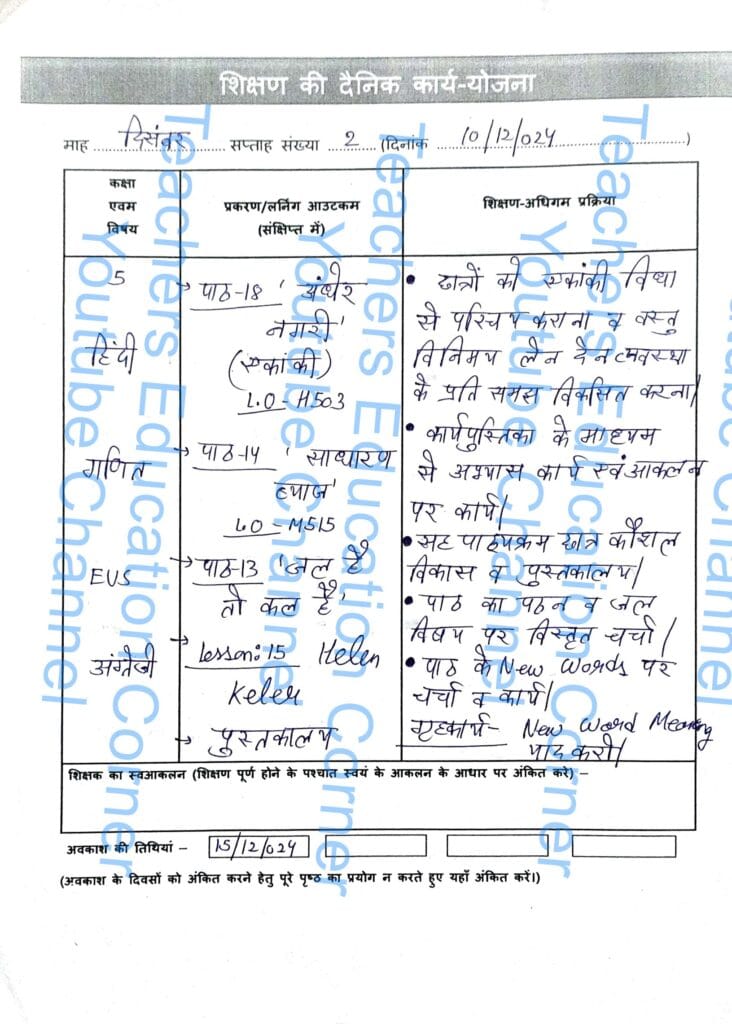 शिक्षण की दैनिक कार्य-योजना
माह दिसंबर सप्ताह संख्या 2 (दिनांक 10/12/024)
कक्षा
एवम
विषय
प्रकरण/लर्निंग आउटकम
(संक्षिप्त में)
शिक्षण-अधिगम प्रक्रिया
5
हिंदी
गणित
EVS
अंग्रेजी
→ पाठ-18 'अंधेर
नगरी'
(एकांकी)
L.O - H503
→ पाठ-14 'साधारण
ब्याज'
L.O - M515
→ पाठ-13 'जल है
तो कल है'
→ Lesson:15 Helen
Keler
→ पुस्तकालय
• छात्रों को एकांकी विधा
से परिचय कराना व वस्तु
विनिमय लेन देन व्यवस्था
के प्रति समझ विकसित करना/
• कार्यपुस्तिका के माध्यम
से अभ्यास कार्य एवं आकलन
पर कार्य/
• सह पाठ्यक्रम छात्र कौशल
विकास व पुस्तकालय/
• पाठ का पठन व जल
विषय पर विस्तृत चर्चा/
• पाठ के New Words पर
चर्चा व कार्य/
गृहकार्य - New Word Meaning
याद करो/
शिक्षक का स्वआकलन (शिक्षण पूर्ण होने के पश्चात स्वयं के आकलन के आधार पर अंकित करे) –
अवकाश की तिथियां – 15/12/024
(अवकाश के दिवसों को अंकित करने हेतु पूरे पृष्ठ का प्रयोग न करते हुए यहाँ अंकित करें।)
Teachers Education Corner
Youtube Channel
Teachers Education Corner
Youtube Channel
Teachers Education Corner
Youtube Channel